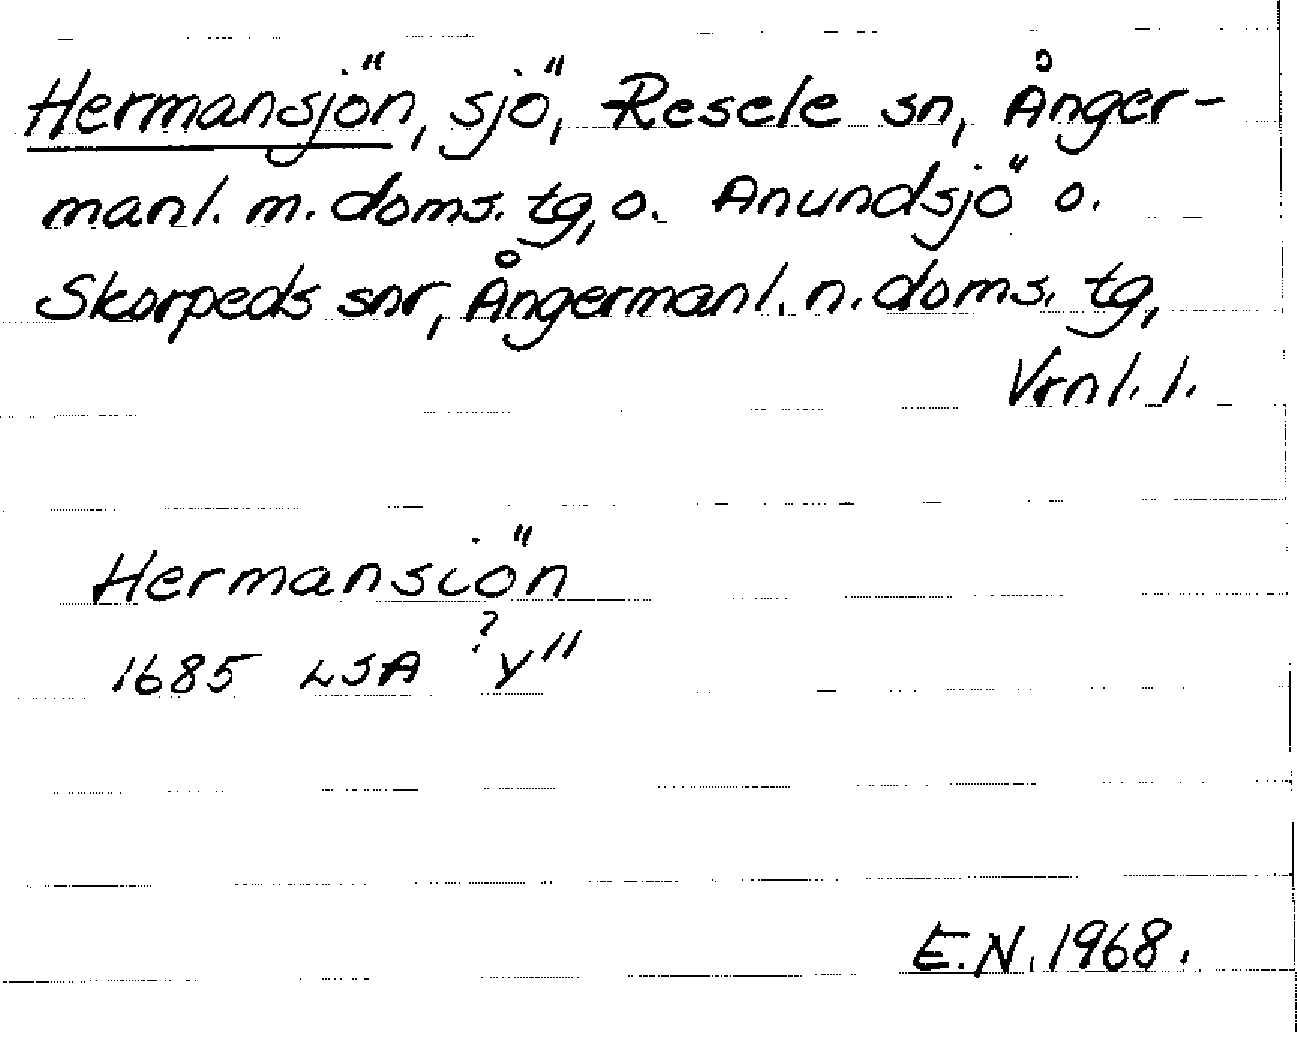 Hermansjön, sjö, Resele sn, Ånger-
manl. m. doms. tg, o. Anundsjö o.
Skorpeds snr, Ångermanl. n. doms. tg,
Vrnl. l.
Hermansiön
1685 LSA ? Y"
E.N. 1968.